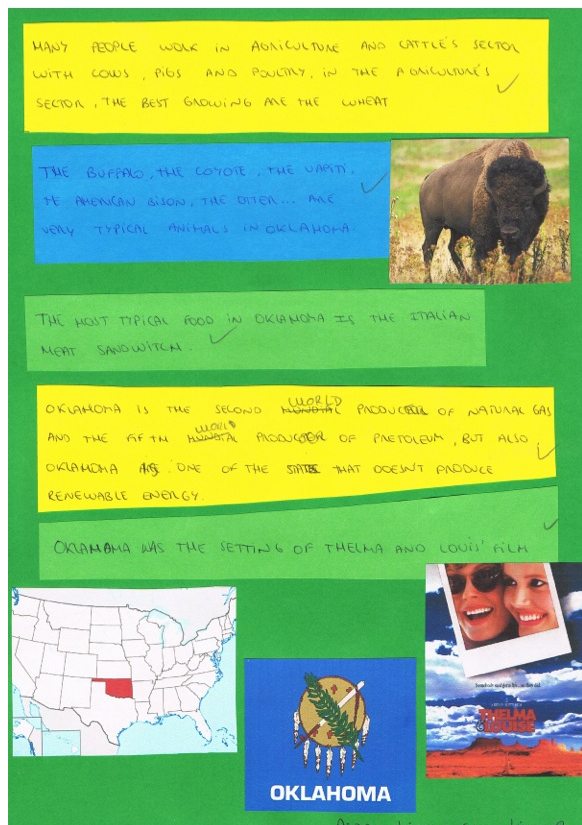 MANY PEOPLE WORK IN AGRICULTURE AND CATTLE'S SECTOR
WITH COWS, PIGS AND POULTRY, IN THE AGRICULTURE'S
SECTOR, THE BEST GROWING ARE THE WHEAT
THE BUFFALO, THE COYOTE, THE UAPITI,
TE AMERICAN BISON, THE OTTER... ARE
VERY TYPICAL ANIMALS IN OKLAHOMA.
THE MOST TYPICAL FOOD IN OKLAHOMA IS THE ITALIAN
MEAT SANDWITCH.
WORLD
OKLAHOMA IS THE SECOND MONDIAL PRODUCTOR OF NATURAL GAS
WORLD
AND THE FIFTH MONDIAL PRODUCTOR OF PRETOLEUM, BUT ALSO
OKLAHOMA IS ONE OF THE STATES THAT DOESN'T PRODUCE
RENEWABLE ENERGY.
OKLAHAMA WAS THE SETTING OF THELMA AND LOUIS' FILM
THELMA
& LOUISE
OKLAHOMA